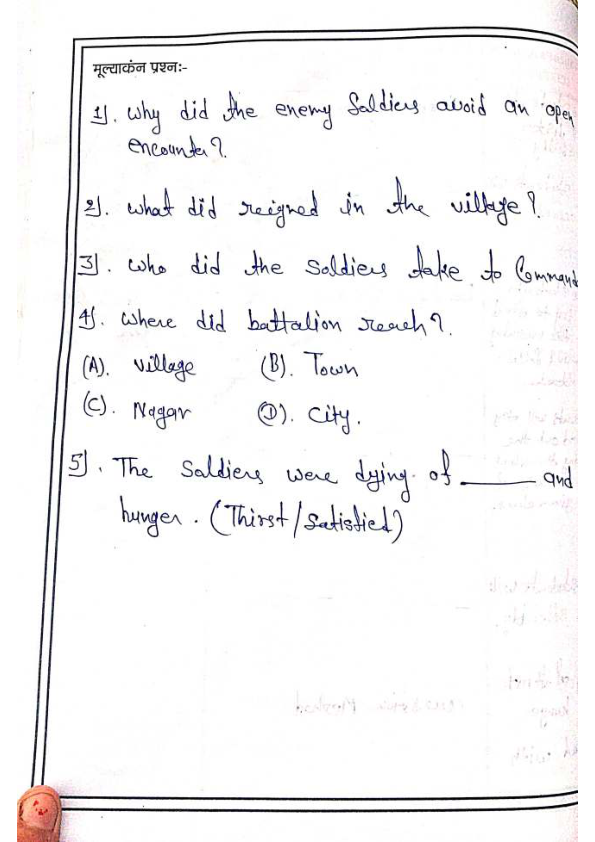 मूल्याकंन प्रश्नः-
1). Why did the enemy Soldiers avoid an open
encounter?
2). What did reigned in the village?
3). Who did the soldiers take to Command
4). Where did battalion reach?
(A). Village (B). Town
(C). Nagar (D). City.
5). The Soldiers were dying of ______ and
hunger. (Thirst/Satisfied)